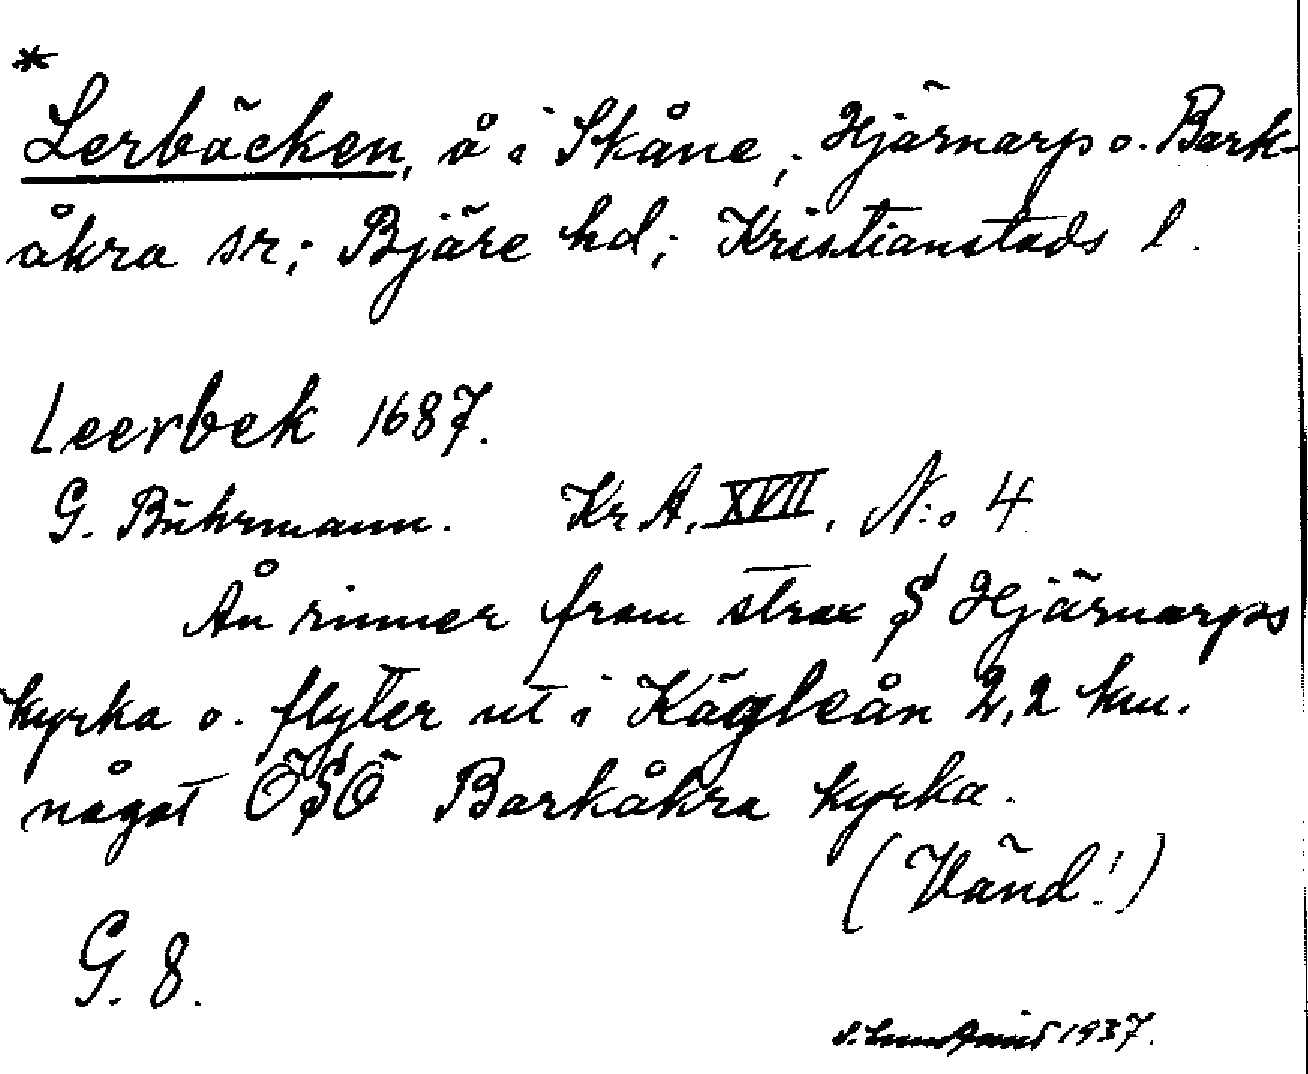 *
Lerbäcken, å i Skåne; Hjärnarp o. Bark-
åkra sr; Bjäre hd; Kristianstads l.
Leerbek 1687.
G. Buhrmann. Kr A, XVII, N:o 4
Ån rinner fram strax S Hjärnarps
kyrka o. flyter ut i Kägleån 2,2 km.
något ÖSÖ Barkåkra kyrka.
(Vänd!)
G. 8.
1937.